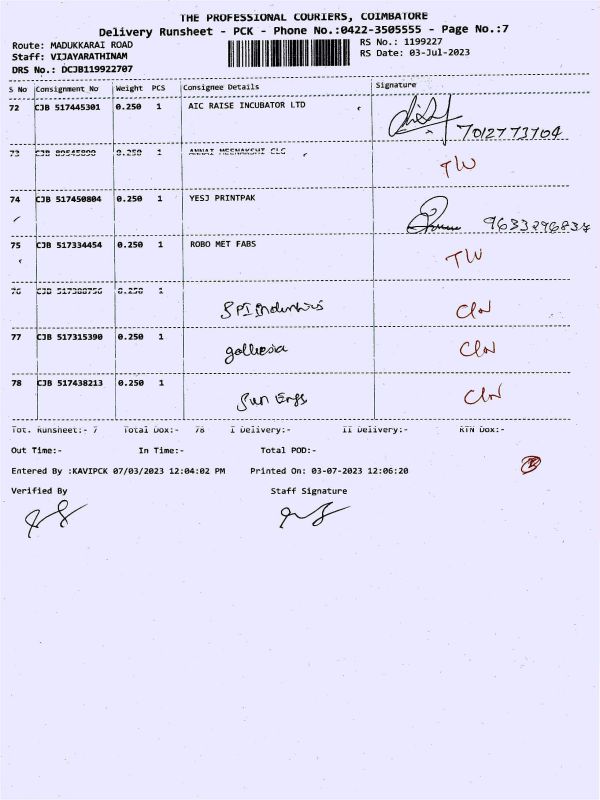 THE PROFESSIONAL COURIERS, COIMBATORE
Delivery Runsheet - PCK - Phone No.:0422-3505555 - Page No.:7
Route: MADUKKARAI ROAD RS No.: 1199227
Staff: VIJAYARATHINAM RS Date: 03-Jul-2023
DRS No.: DCJB119922707
S No Consignment No Weight PCS Consignee Details Signature
72 CJB 517445301 0.250 1 AIC RAISE INCUBATOR LTD
7012773704
73 CJB 0.250 1 ANNAI MEENAKSHI CLG
TW
74 CJB 517450804 0.250 1 YESJ PRINTPAK
9633296834
75 CJB 517334454 0.250 1 ROBO MET FABS
TW
76 CJB 517388756 0.250 1
SPI Industries CLN
77 CJB 517315390 0.250 1
CLN
78 CJB 517438213 0.250 1
Sun Engs CLN
Tot. Runsheet:- 7 Total Dox:- 78 I Delivery:- II Delivery:- RTN Dox:-
Out Time:- In Time:- Total POD:-
Entered By :KAVIPCK 07/03/2023 12:04:02 PM Printed On: 03-07-2023 12:06:20
Verified By Staff Signature